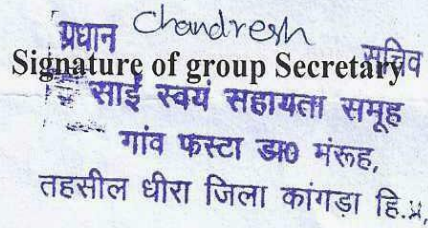 प्रधान Chandresh सचिव
Signature of group Secretary
साई स्वयं सहायता समूह
गांव फस्टा डा0 मंरूह,
तहसील धीरा जिला कांगड़ा हि.प्र,